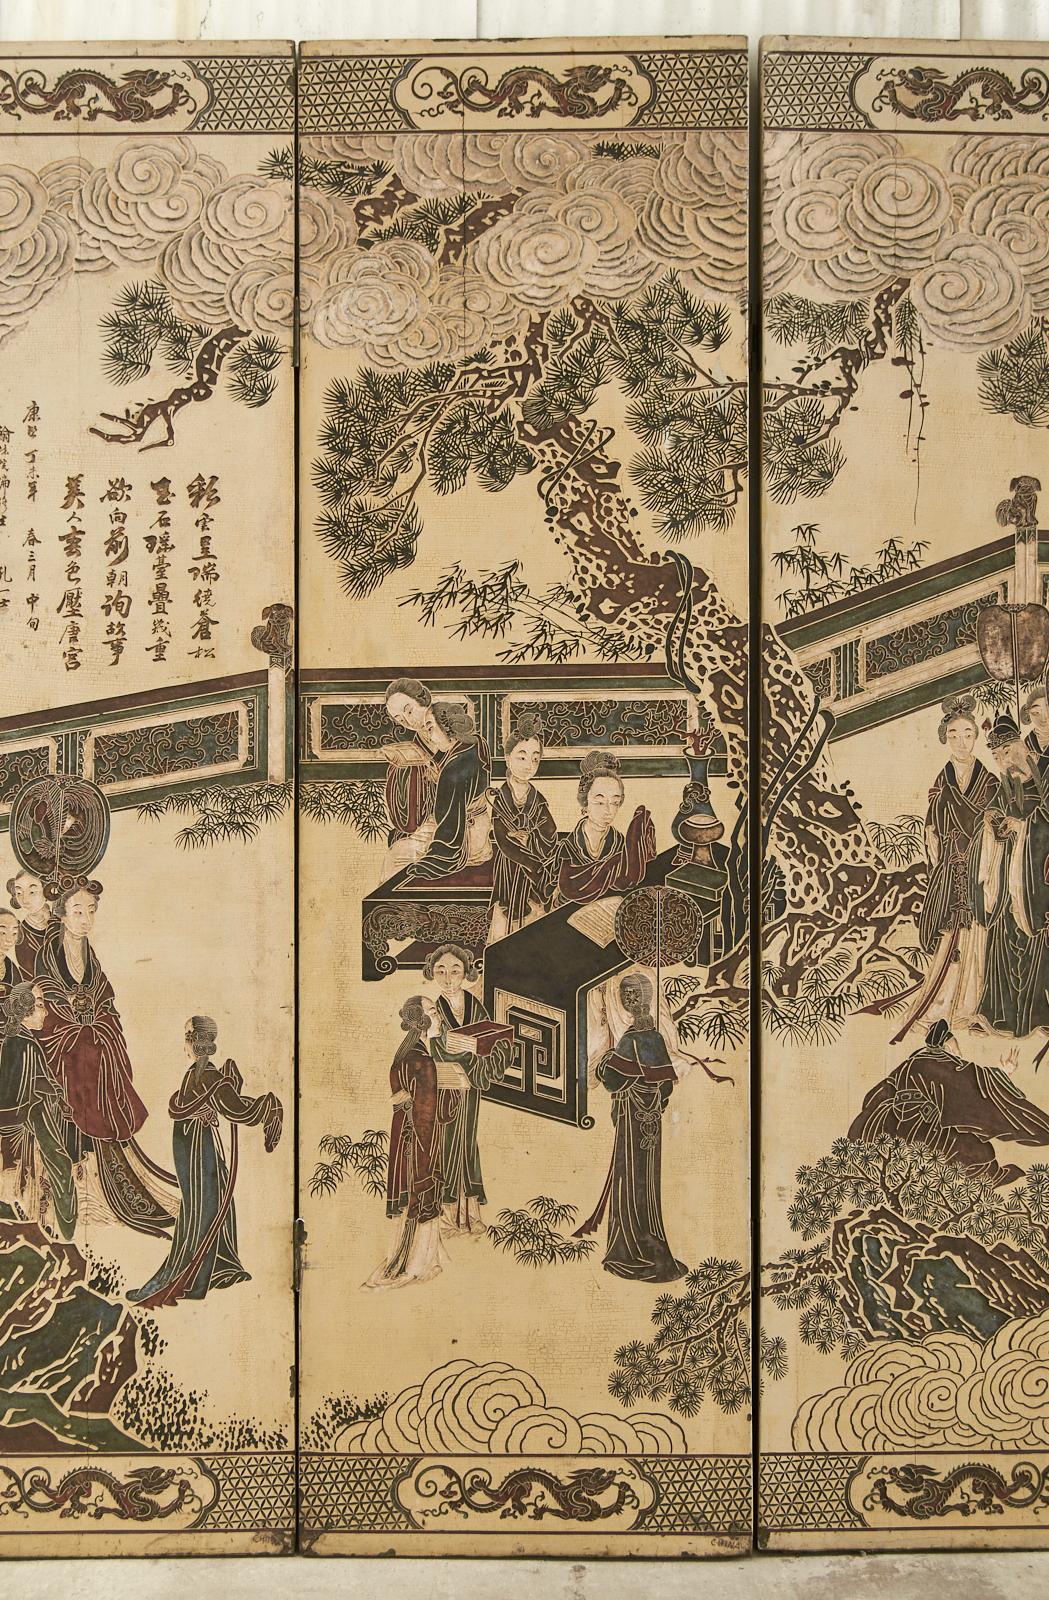 彩雲呈瑞繞蒼松
玉石瑤臺疊幾重
欲向前朝詢故事
美人玄色壓唐宮
康熙丁未年 春三月 中旬
CHINA
CHINA